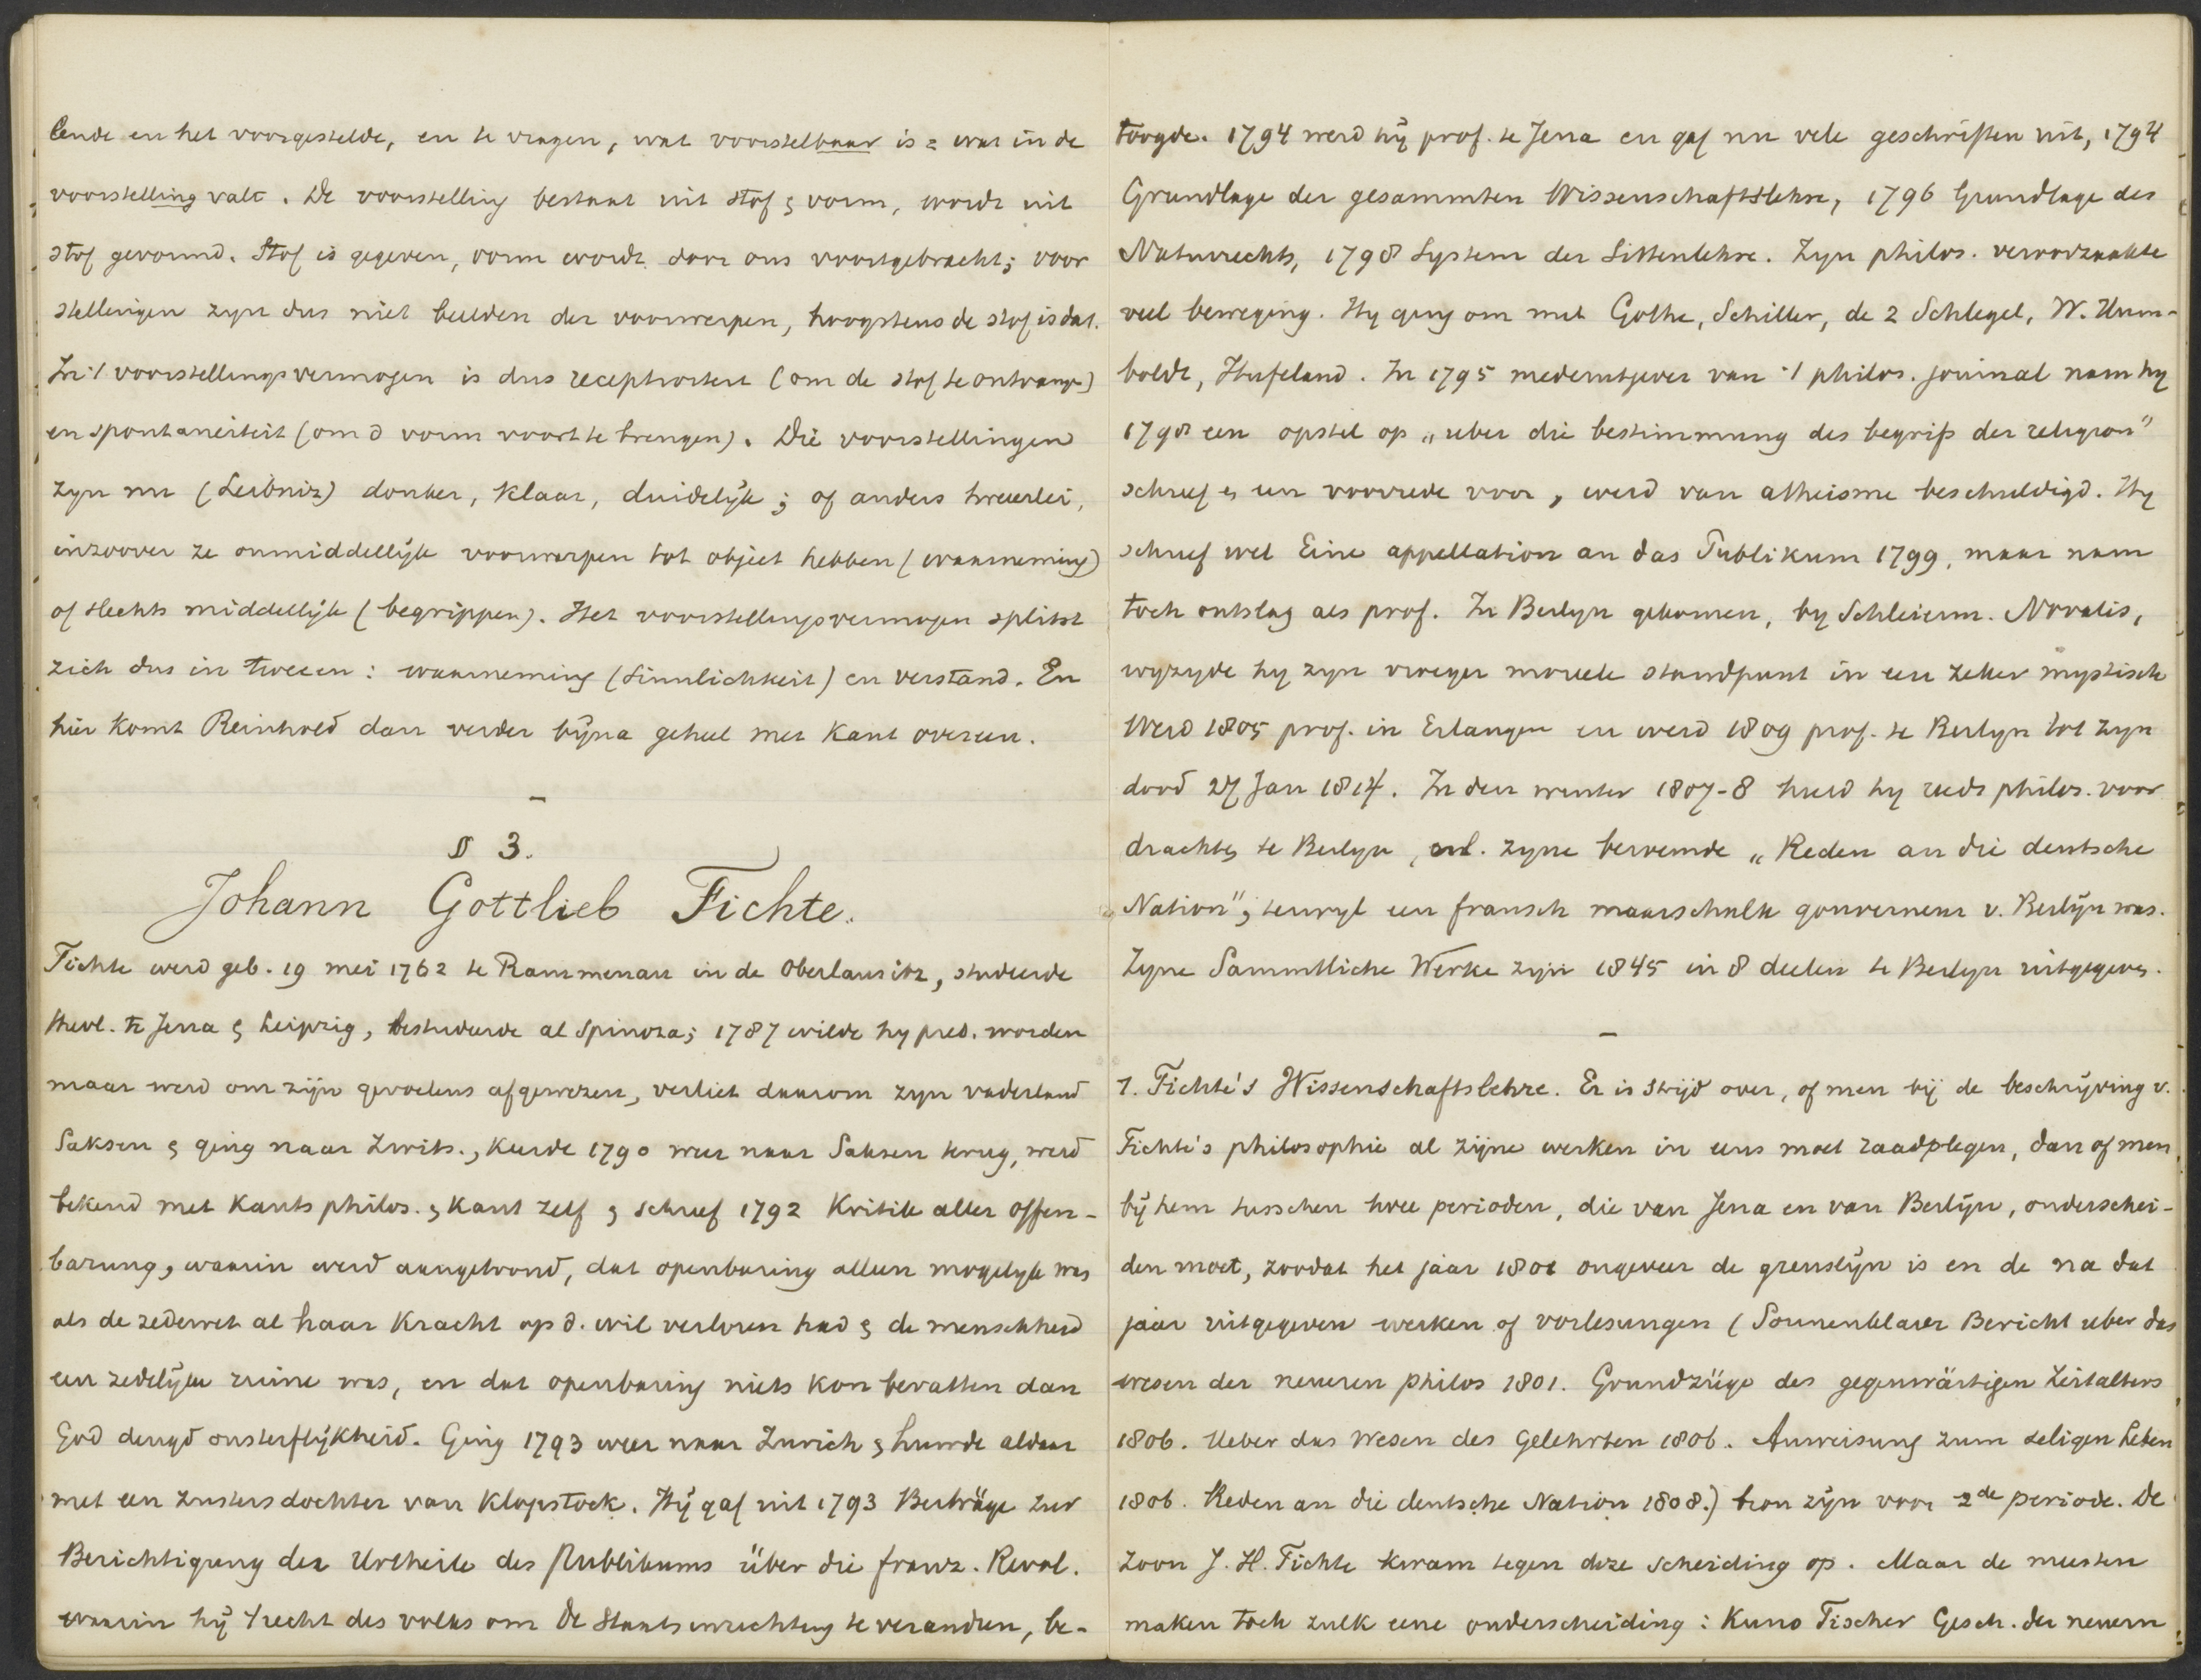 lende en het voorgestelde, en te vragen, wat voorstelbaar is = wat in de
voorstelling valt. De voorstelling bestaat uit stof & vorm, wordt uit
stof gevormd. Stof is gegeven, vorm wordt door ons voortgebracht; voor
stellingen zyn dus niet beelden der voorwerpen, hoogstens de stof is dat.
In 't voorstellingsvermogen is dus receptiviteit (om de stof te ontvangen)
en spontaneiteit (om d vorm voort te brengen). Die voorstellingen
zyn nu (Leibniz) donker, klaar, duidelijk; of anders tweeerlei,
inzoover ze onmiddellijk voorwerpen tot object hebben (waarneming)
of slechts middellijk (begrippen). Het voorstellingsvermogen splitst
zich dus in tweeen: waarneming (Sinnlichkeit) en verstand. En
hier komt Reinhold dan verder bijna geheel met Kant overeen.
—
§ 3.
Johann Gottlieb Fichte.
Fichte werd geb. 19 mei 1762 te Rammenau in de Oberlausitz, studeerde
theol. te Jena & Leipzig, bestudeerde al Spinoza; 1787 wilde hy pred. worden
maar werd om zijn gevoelens afgewezen, verliet daarom zyn vaderland
Saksen & ging naar Zwits., keerde 1790 weer naar Saksen terug, werd
bekend met Kants philos. & Kant zelf & schreef 1792 Kritik aller Offen-
barung, waarin werd aangetoond, dat openbaring alleen mogelyk was
als de zedewet al haar kracht op d. wil verloren had & de menschheid
een zedelijke ruine was, en dat openbaring niets kon bevatten dan
God deugd onsterflijkheid. Ging 1793 weer naar Zurich & huwde aldaar
met een zustersdochter van Klopstock. Hij gaf uit 1793 Beiträge zur
Berichtigung der Urtheile des Publikums über die franz. Revol.
waarin hij 't recht des volks om de Staatsinrichting te veranderen, be-
toogde. 1794 werd hij prof. te Jena en gaf nu vele geschriften uit, 1794
Grundlage der gesammten Wissenschaftslehre, 1796 Grundlage des
Naturrechts, 1798 System der Sittenlehre. Zyn philos. veroorzaakte
veel beweging. Hy ging om met Göthe, Schiller, de 2 Schlegel, W. Hum-
boldt, Hufeland. In 1795 medeuitgever van 't philos. journal nam hy
1798 een opstel op „ueber die bestimmung des begriffs der religion"
schreef er een voorrede voor, werd van atheisme beschuldigd. Hy
schreef wel Eine appellation an das Publikum 1799, maar nam
toch ontslag als prof. In Berlyn gekomen, by Schleierm. Novalis,
wyzigde hy zyn vroeger moreele standpunt in een zeker mystisch
Werd 1805 prof. in Erlangen en werd 1809 prof. te Berlyn tot zyn
dood 27 Jan 1814. In den winter 1807-8 hield hy reeds philos. voor
drachten te Berlyn, onl. zyne beroemde „Reden an die deutsche
Nation", terwyl een fransch maarschalk gouverneur v. Berlijn was.
Zyne Sammtliche Werke zijn 1845 in 8 deelen te Berlyn uitgegeven.
—
1. Fichte's Wissenschaftslehre. Er is strijd over, of men bij de beschrijving v.
Fichte's philosophie al zijne werken in eens moet raadplegen, dan of men
bij hem tusschen twee perioden, die van Jena en van Berlijn, onderschei-
den moet, zoodat het jaar 1801 ongeveer de grenslijn is en de na dat
jaar uitgegeven werken of vorlesungen (Sonnenklarer Bericht ueber das
wesen der neueren philos 1801. Grundzüge des gegenwärtigen Zeitalters
1806. Ueber das Wesen des Gelehrten 1806. Anweisung zum seligen Leben
1806. Reden an die deutsche Nation 1808.) bron zijn voor 2de periode. De
zoon J. H. Fichte kwam tegen deze scheiding op. Maar de meesten
maken toch zulk eene onderscheiding: Kuno Fischer Gesch. der neuern